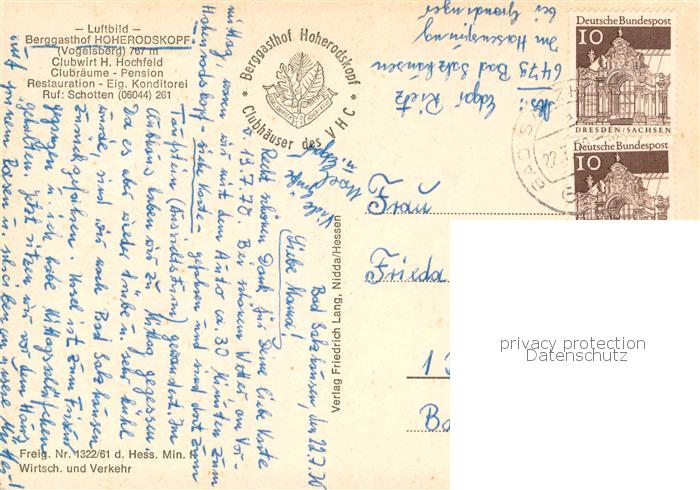 – Luftbild –
Berggasthof HOHERODSKOPF
(Vogelsberg) 767 m
Clubwirt H. Hochfeld
Clubräume - Pension
Restauration - Eig. Konditorei
Ruf: Schotten (06044) 261
* Berggasthof Hoherodskopf *
Clubhäuser des VHC
Abs.: Edgar Rietz
6479 Bad Salzhausen
Im Hasensprung
bei
Deutsche Bundespost
10
DRESDEN/SACHSEN
Deutsche Bundespost
10
BAD S
22.7.
Frau
Frieda
1
Ba
privacy protection
Datenschutz
Verlag Friedrich Lang, Nidda/Hessen
Bad Salzhausen, den 22.7.70
Liebe Mama!
Recht schönen Dank für Deine liebe Karte
v. 19.7.70. Bei schönem Wetter am Vor-
mittag, waren wir mit dem Auto ca. 30 Minuten zum
Hoherodskopf - siehe Karte - gefahren und sind dort zum
Taufstein (Aussichtsturm) gewandert. Im
haben wir zu Mittag gegessen
Da es aber wieder trübe u. sehr kühl
wurde, sind wir nach Bad Salzhausen
zurückgefahren. Ursel ist zum Friseur
gegangen u. ich habe Mittagsschläfchen
gehalten. Jetzt sitzen wir vor dem Haus
mit Rosen u. schreiben an unsere Mutter!
Viele Grüße
Ursel
u. Edgar
Freig. Nr. 1322/61 d. Hess. Min. f.
Wirtsch. und Verkehr